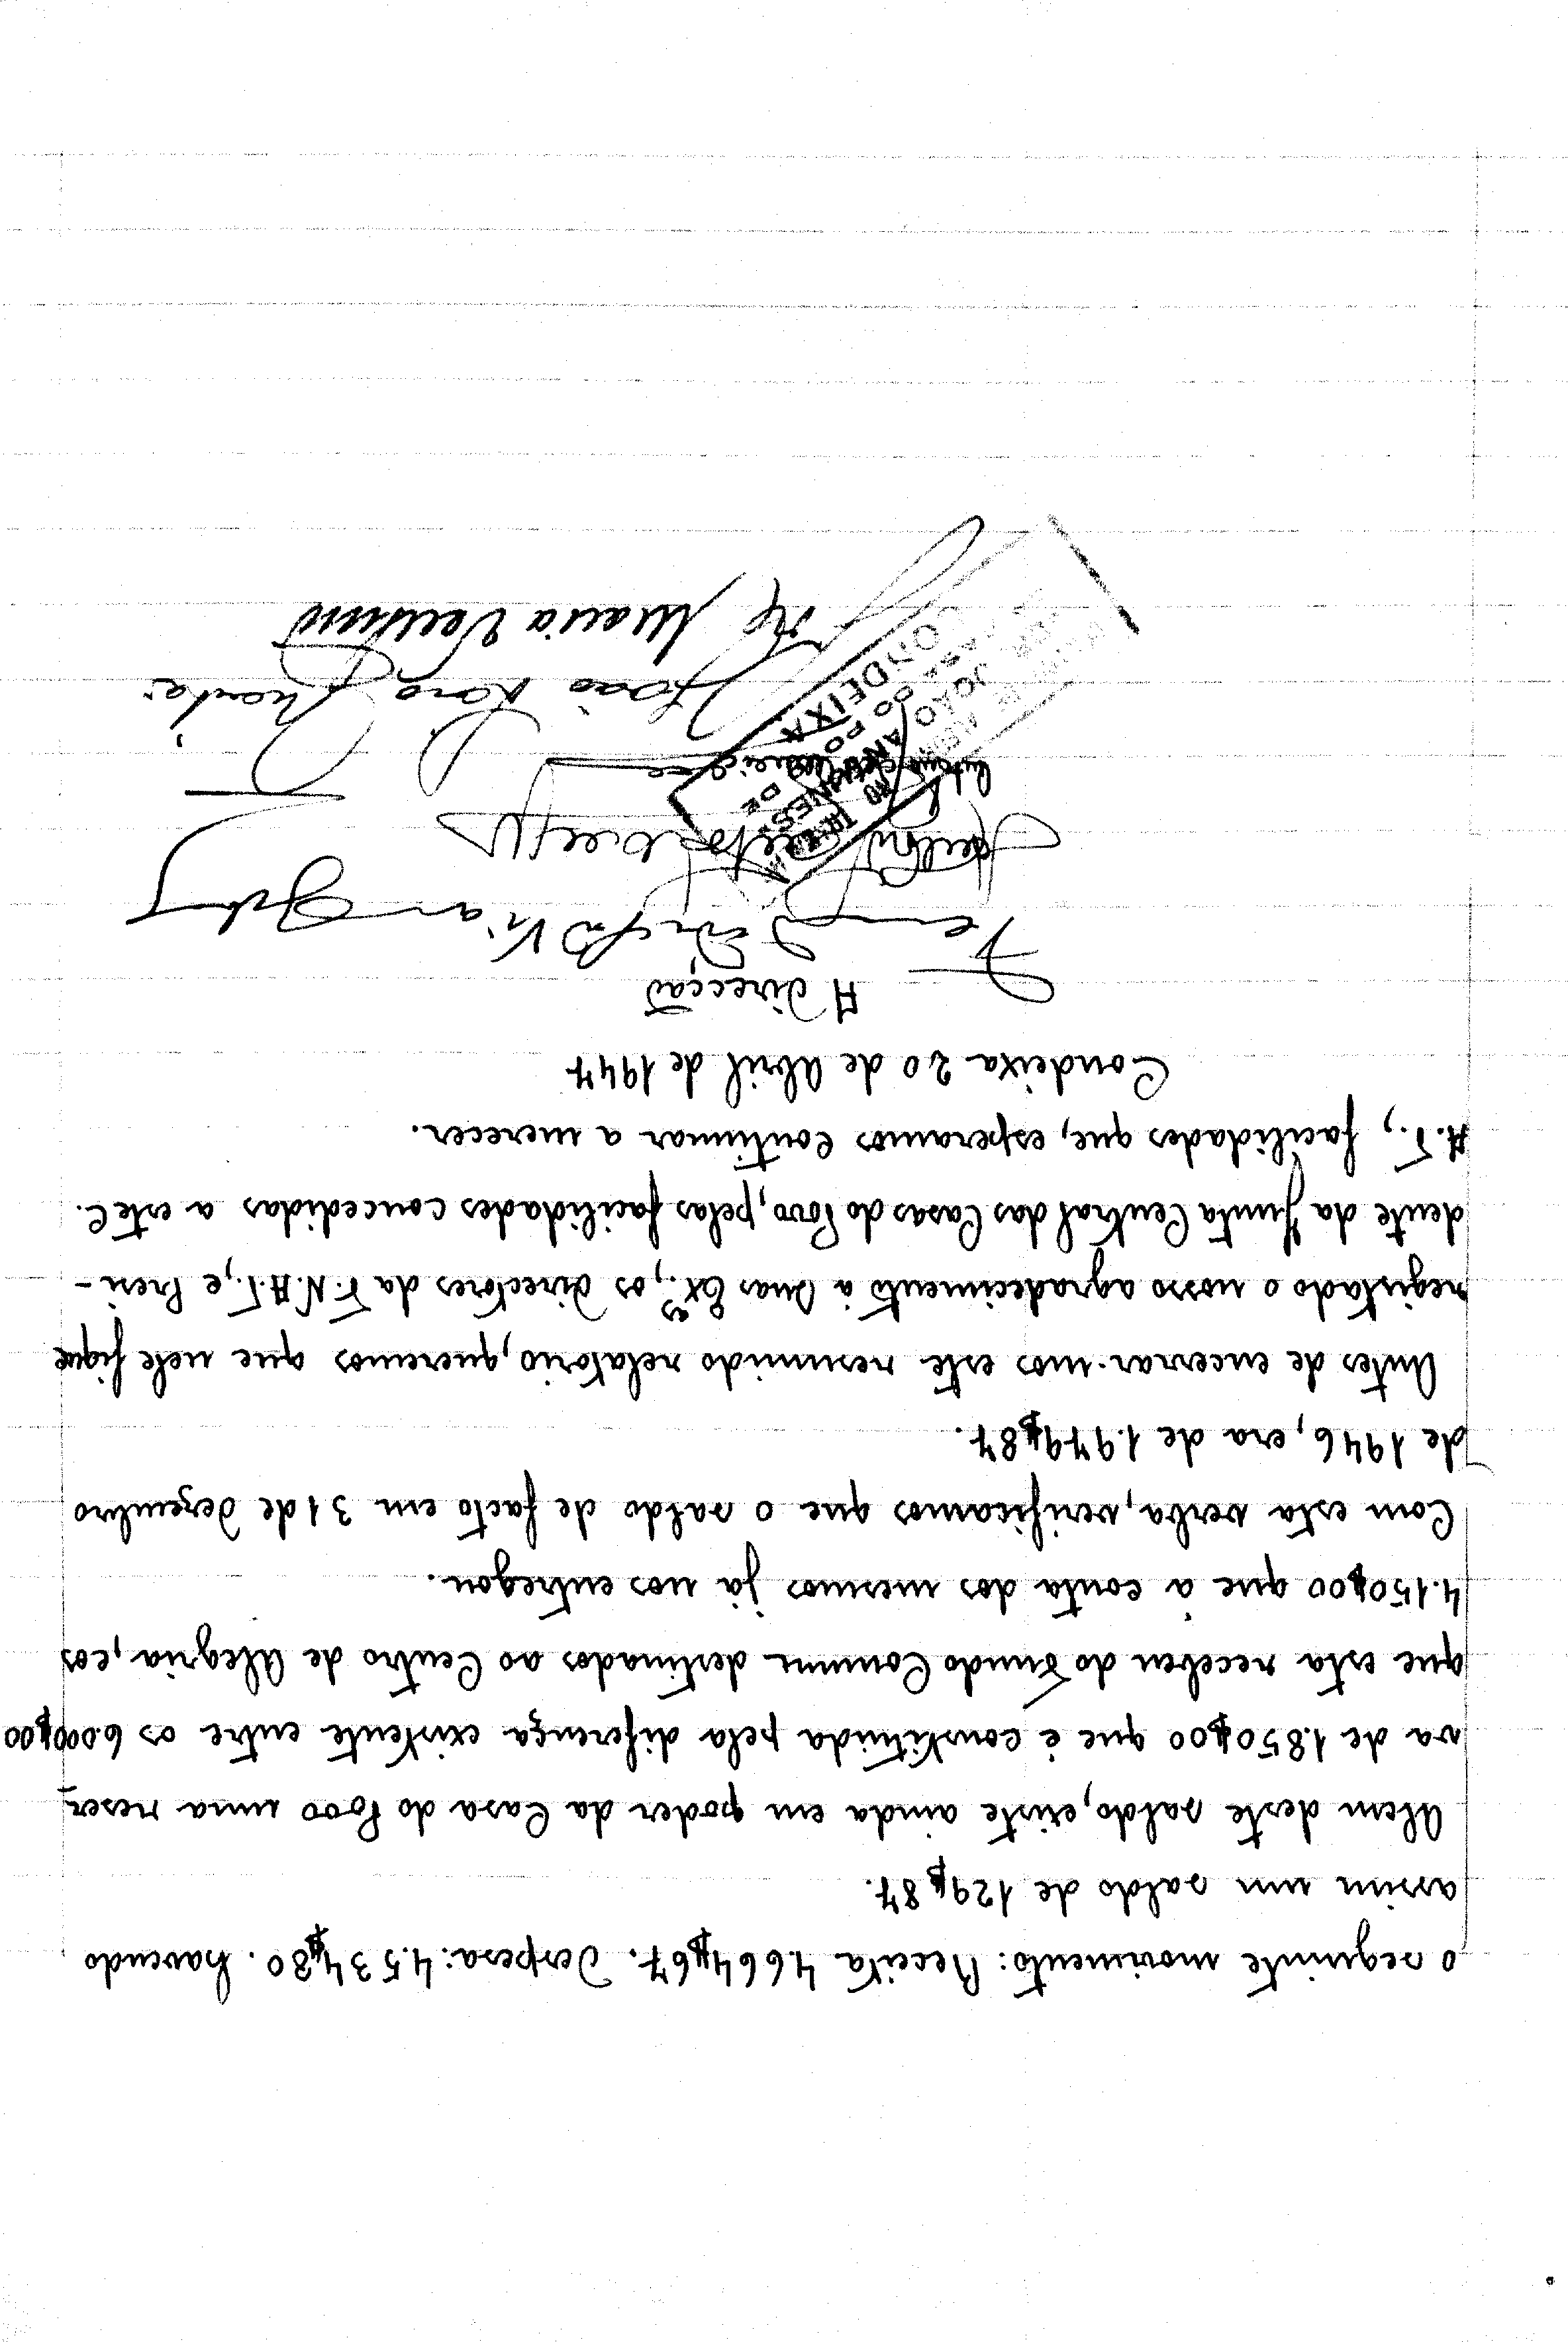 o seguinte movimento: Receita 4.664$67. Despesa: 4.534$80. havendo
assim um saldo de 129$87.
Alem deste saldo, existe ainda em poder da Casa do Povo uma reser-
va de 1.850$00 que é constituida pela diferença existente entre os 6.000$00
que esta recebeu do Fundo Comum destinados ao Centro de Alegria, e os
4.150$00 que à conta dos mesmos já nos entregou.
Com esta verba, verificamos que o saldo de facto em 31 de Dezembro
de 1946, era de 1.979$87.
Antes de encerrar-mos este resumido relatorio, queremos que nele fique
registado o nosso agradecimento à Suas Ex.ᵃˢ, os directores da F.N.A.T., e Presi-
dente da Junta Central das Casas do Povo, pelas facilidades concedidas a este C.
A.T., facilidades que, esperamos continuar a merecer.
Condeixa 20 de Abril de 1947
A Direcção
João
Maria
JOÃO ANTUNES
DO POVO DE
CONDEIXA